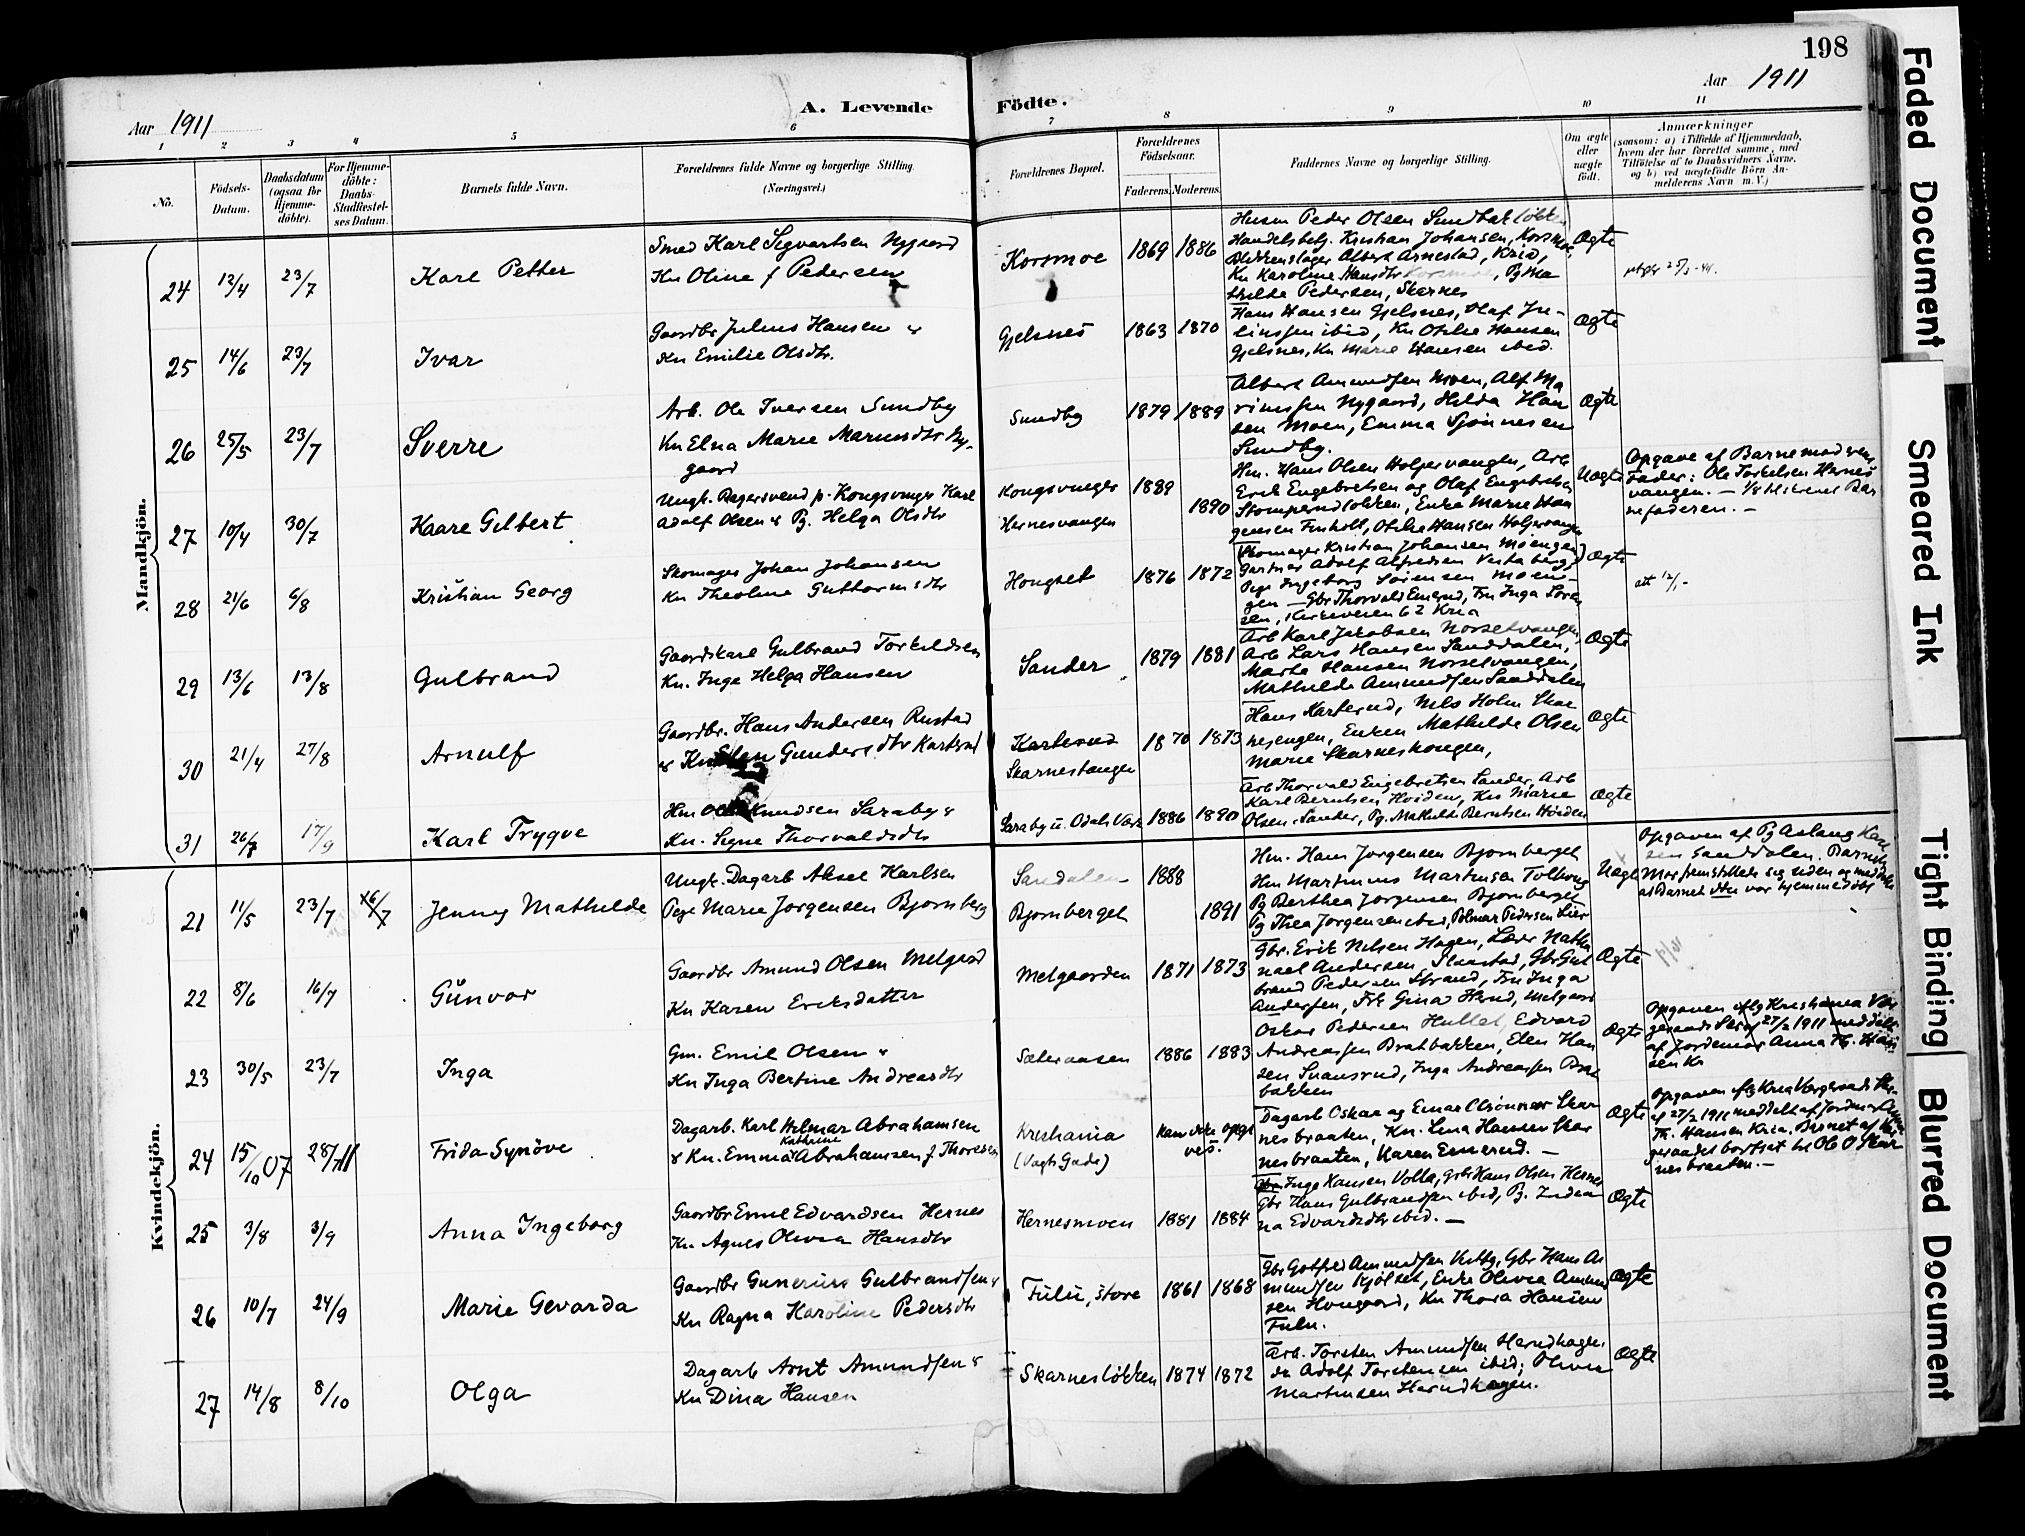 198
Aar 1911
A. Levende Födte.
Aar 1911
1 2 3 4 5 6 7 8 9 10 11
No.
Födsels-Datum.
Daabsdatum (ogsaa for Hjemme-döbte).
For Hjemme-döbte: Daabs-Stadfæstel-ses Datum.
Barnets fulde Navn.
Forældrenes fulde Navne og borgerlige Stilling. (Næringsvei.)
Forældrenes Bopæl.
Forældrenes Födselsaar.
Faderens. Moderens.
Faddernes Navne og borgerlige Stilling.
Om ægte eller uægte födt.
Anmærkninger
(saasom: a) i Tilfælde af Hjemmedaab,
hvem der har forrettet samme, med
Tilföielse af to Daabsvidners Navne,
og b) ved uægtefödte Börn An-
melderens Navn m. V.)
Mandkjön.
24 12/4 23/7 Karl Petter
Smed Karl Sigvartsen Nygaard
Kn Oline f Pedersen
Korsmoe 1869 1886
Husm Peder Olsen Sundbakløkke
Handelsbetj. Kristian Johansen, Korsmoe,
Blikkenslager Albert Arnestad, Kria,
Kn Karoline Hansdtr Korsmoe, Pg Ma
thilde Pedersen, Skarnes
Ægte
25 14/6 23/7 Ivar
Gaardbr Julius Hansen &
Kn Emilie Olsdtr.
Gjelsnes 1863 1870
Hans Hansen Gjelsnes, Olaf Ju-
liussen ibid, Kn Othilie Hansen
Gjelsnes, Kn Marie Hansen ibid.
Ægte
26 25/5 23/7 Sverre
Arb. Ole Iversen Sundby
Kn Elna Marie Mariusdtr Ny-
gaard
Sundby 1879 1889
Albert Amundsen Moen, Alf Ma
riussen Nygaard, Hilda Han
sen Moen, Emma Sjønnesen
Sundby.
Ægte
27 10/4 30/7 Kaare Gilbert
Ungk. Bagersvend p. Kongsvinger Karl
Adolf Olsen & Pg. Helga Olsdtr
Kongsvinger 1889
Hernesvangen 1890
Hm. Hans Olsen Holjervangen, Arb
Erik Engebretsen og Olaf Engebretsen
Stomperudløkken, Enke Marie Haa
gensen Finholt, Othilie Hansen Holjervangen
Uægte
Opgave af Barnemoderens
Fader: Ole Torkelsen Hernes
vangen. —
nefaderen. —
28 21/6 6/8 Kristian Georg
Skomager Johan Johansen
Kn Theoline Guttormsdtr
Hongset 1876 1872
Skomager Kristian Johansen Moengen
Gartner Adolf Alfredsen Vestaberg
Pige Ingeborg Sørensen Moen-
gen — Gbr Thorvald Emerud, Fru Inga Loren
sen, Kirkeveien 62 Kria
Ægte
29 13/6 13/8 Gulbrand
Gaardskarl Gulbrand Torkildsen
Kn. Inga Helga Hansen
Sander 1879 1881
Arb Karl Jakobsen Norsetvangen,
Arb Lars Hansen Sanddalen,
Marte Hansen Norsetvangen,
Mathilde Amundsen Sanddalen
Ægte
30 21/4 27/8 Arnulf
Gaardbr. Hans Andersen Rustad
& Kn Ellen Gundersdtr Karterud
Karterud 1870 1873
Skarnestangen
Hans Karterud, Nils Holm Skar
nesengen, Enken Mathilde Olsen
Marie Skarneshougen,
Ægte
31 26/7 17/9 Karl Trygve
Hm Ole Knudsen Saraby &
Kn. Signe Thorvaldsdtr
Saraby u. Odals Værk 1886 1890
Arb Thorvald Engebretsen Sander, Arb
Karl Berntsen Hoiden, Kn Marie
Olsen Sander, Pg. Mathilde Berntsen Hoiden
Ægte
Kvindekjön.
21 11/5 23/7 16/7 Jenny Mathilde
Ungk. Dagarb Aksel Karlsen
Pige Marie Jorgensen Bjornberg
Sandalen 1888
Bjornberget 1891
Hm. Hans Jorgensen Bjornberget
Hm Martinus Martinsen Tolborg
Pg Berthea Jorgensen Bjornberget
Pg Thea Jorgensen ibid, Polmar Pedersen Lier
Uægte
Opgaven af Pg Aslaug Karl
sen Sanddalen. Barnets
Mor fremstillede seg siden og meddelte
at Barnet ikke var hjemmedøbt
22 8/6 16/7 Gunvor
Gaardbr Amund Olsen Melgaard
Kn Karen Eriksdatter
Melgaarden 1871 1873
Gbr. Erik Nilsen Hagen, Lærer Natha
nael Andersen Slaastad, Gbr Gul
brand Pedersen Strand, Fru Inga
Andersen, Frk Gina Strand, Melgaard
Ægte
23 30/5 23/7 Inga
Gm. Emil Olsen &
Kn Inga Bertine Andreasdtr
Sæteraasen 1886 1883
Oskar Pedersen Hullet, Edvard
Andreassen Bratbakken, Elen Han
sen Svansrud, Inga Andreassen Brat
bakken
Ægte
Opgaven iflg Kristiania Vær
geraads Skr af 27/2 1911 meddelt
af Jordemor Anna Th. Han
sen Kr
24 15/10 07 28/7 11 Frida Synöve
Dagarb. Karl Hilmar Abrahamsen
& Kn. Emma Kathrine Abrahamsen f Thoresen
Kristiania
(Vogts Gade)
Kan ikke opgi
ves.
Dagarb Oskar og Einar Olsønner Skar
nesbraaten, Kn. Lina Hansen Skar
nesbraaten, Karen Emerud. —
Ægte
Opgaven iflg Kria Værgeraads Skr.
af 27/2 1911 meddelt af Jordmor Anna
Th. Hansen Kria. Barnet af Vær
geraadet bortsat til Ole O Skar
nesbraaten. —
25 3/8 3/9 Anna Ingeborg
Gaardbr Emil Edvardsen Hernes
Kn. Agnes Olivia Hansdtr
Hernesmoen 1881 1884
Inga Hansen Volla, Gbr Hans Olsen Hernes
Gbr Hans Gulbrandsen ibid, Pg. Indea
na Edvardsdtr ibid. —
Ægte
26 10/7 24/9 Marie Gevarda
Gaardbr Gunerius Gulbrandsen &
Kn Ragna Karoline Pedersdtr
Fulu, store 1861 1868
Gbr Gotfred Amundsen Vitby, Gbr Hans A
mundsen Kjølset, Enke Olivia Amund
sen Hvngaard, Kn Thora Hansen
Fulu.
Ægte
27 14/8 8/10 Olga
Dagarb Arnt Amundsen &
Kn Dina Hansen
Skarnesløkken 1874 1872
Arb. Torsten Amundsen Herudhagen
Adolf Torstensen ibid; Olivia
Martinsen Herudhagen.
Ægte
Faded Document
Smeared Ink
Tight Binding
Blurred Document